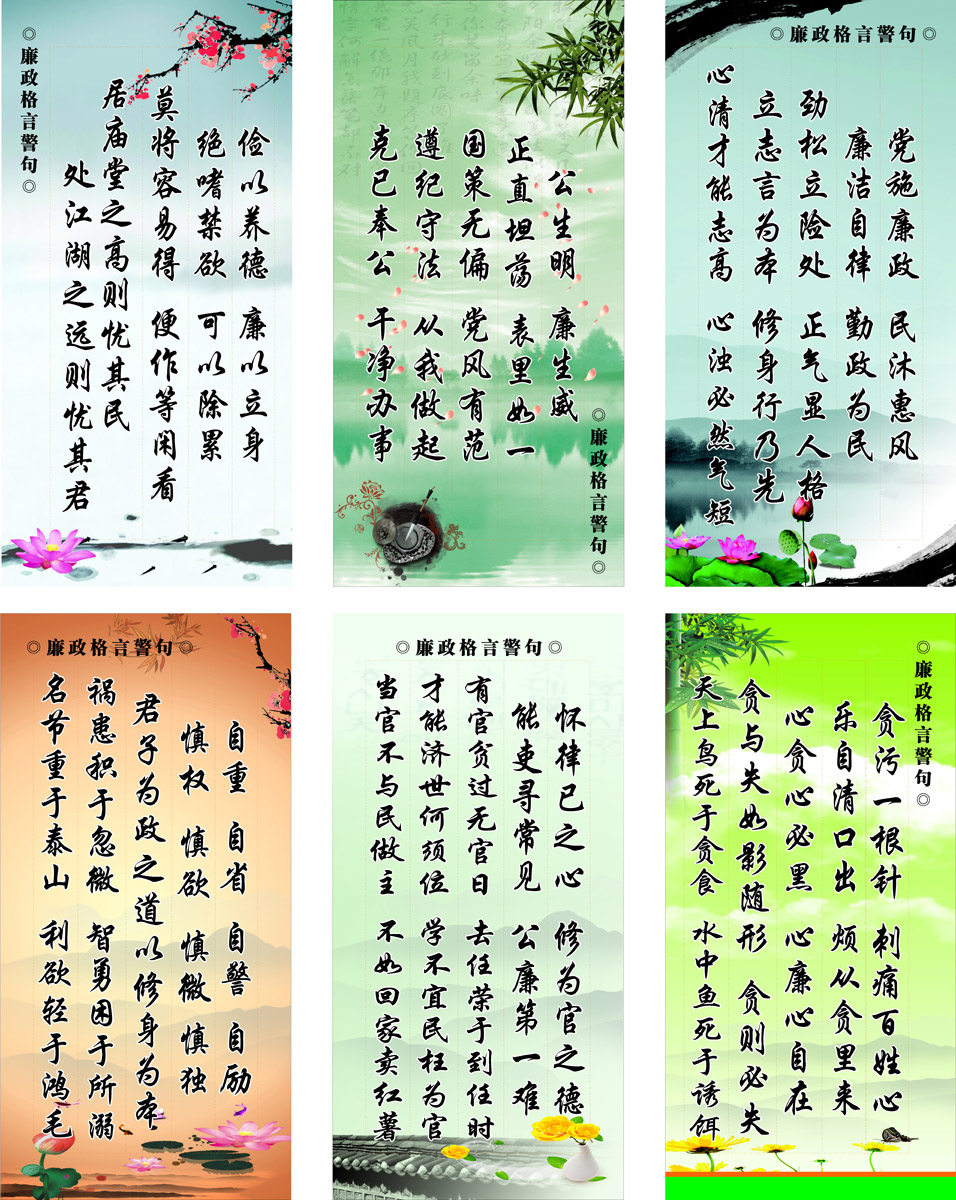 ◎廉政格言警句◎
俭以养德 廉以立身
绝嗜禁欲 可以除累
莫将容易得 便作等闲看
居庙堂之高则忧其民
处江湖之远则忧其君
公生明 廉生威
正直坦荡 表里如一
国策无偏 党风有范
遵纪守法 从我做起
克已奉公 干净办事
◎廉政格言警句◎
◎廉政格言警句◎
党施廉政 民沐惠风
廉洁自律 勤政为民
劲松立险处 正气显人格
立志言为本 修身行乃先
心清才能志高 心浊必然气短
◎廉政格言警句◎
自重 自省 自警 自励
慎权 慎欲 慎微 慎独
君子为政之道以修身为本
祸患积于忽微 智勇困于所溺
名节重于泰山 利欲轻于鸿毛
◎廉政格言警句◎
怀律已之心 修为官之德
能吏寻常见 公廉第一难
有官贫过无官日 去任荣于到任时
才能济世何须位 学不宜民枉为官
当官不与民做主 不如回家卖红薯
◎廉政格言警句◎
贪污一根针 刺痛百姓心
乐自清口出 烦从贪里来
心贪心必黑 心廉心自在
贪与失如影随形 贪则必失
天上鸟死于贪食 水中鱼死于诱饵